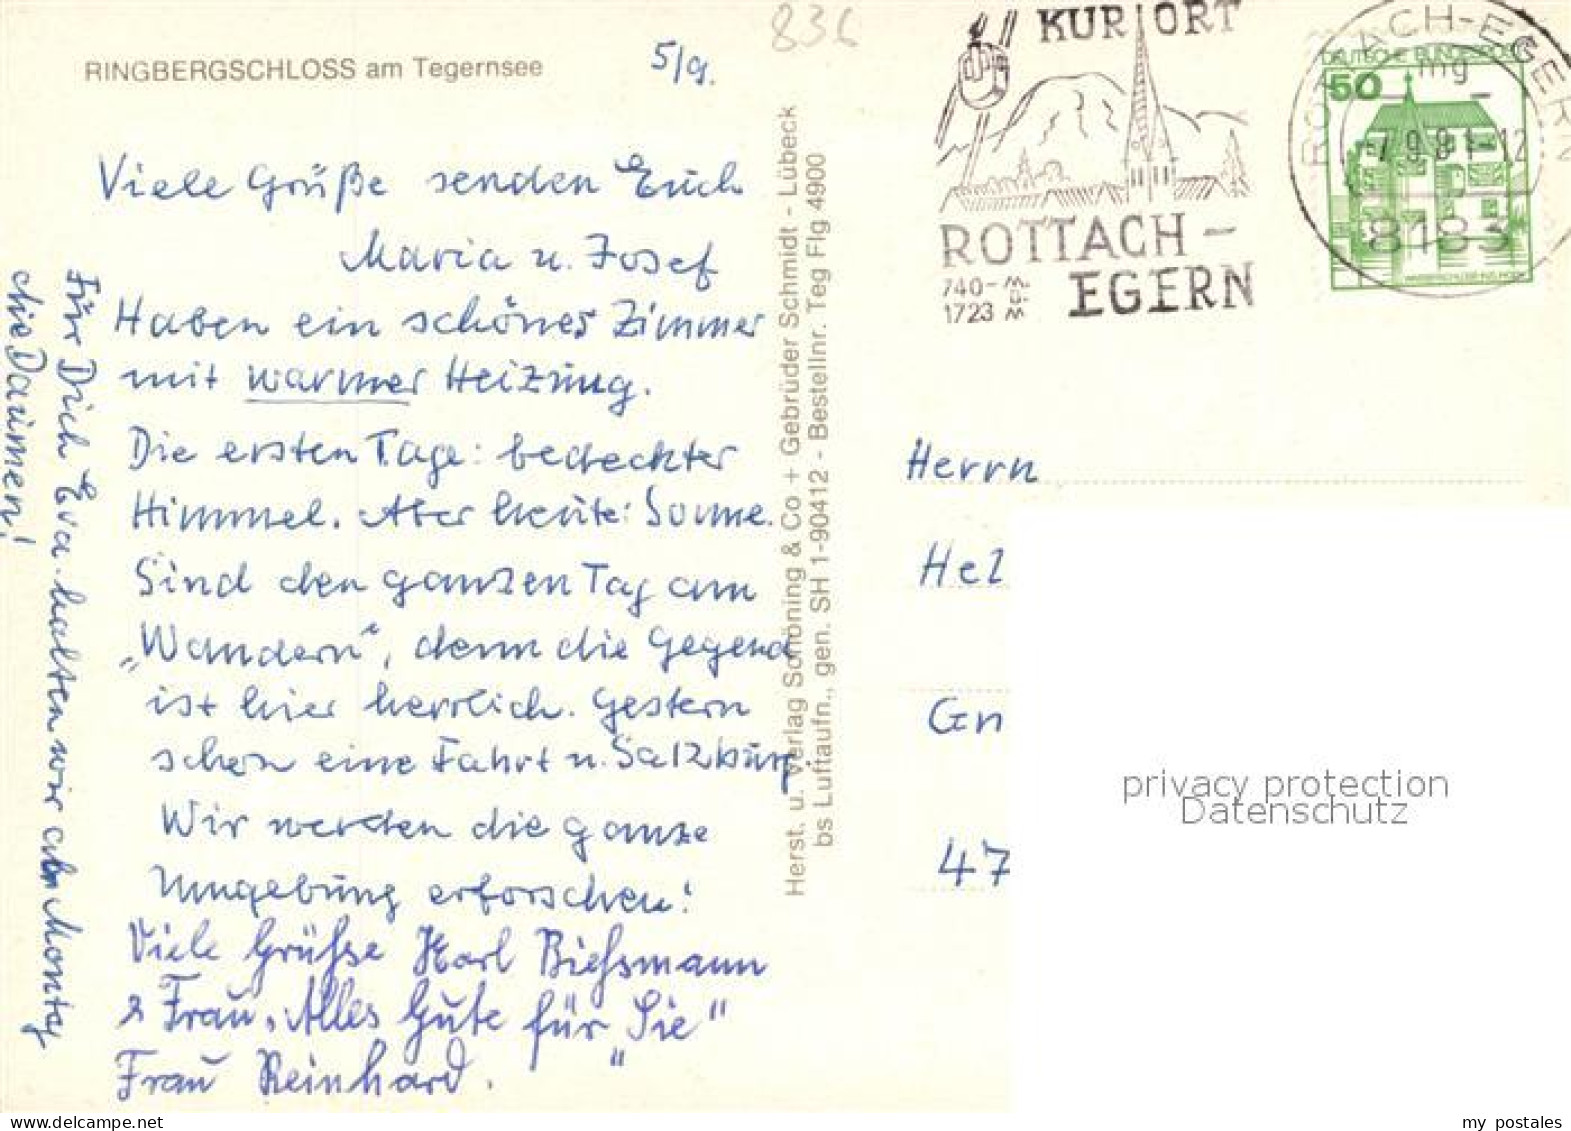 RINGBERGSCHLOSS am Tegernsee
5/9.
836
Viele Grüße senden Euch
Maria u. Josef
Haben ein schönes Zimmer
mit warmer Heizung.
Die ersten Tage: bedeckter
Himmel. Aber heute: Sonne.
Sind den ganzen Tag am
„Wandern“, denn die Gegend
ist hier herrlich. Gestern
schon eine Fahrt n. Salzburg.
Wir werden die ganze
Umgebung erforschen!
Viele Grüße Karl Bießmann
& Frau. Alles Gute für „Sie“
Frau Reinhard.
Für Dich Eva halten wir am Montag
die Daumen!
Herst. u. Verlag Schöning & Co + Gebrüder Schmidt - Lübeck
bs Luftaufn., gen. SH 1-90412 - Bestellnr. Teg Flg 4900
KURORT
ROTTACH-
EGERN
740- M.
Ü.
1723 M
ROTTACH-EGERN
mg
7.9.81-12
8183
DEUTSCHE BUNDESPOST
50
Herrn
Hel
Gn
47
privacy protection
Datenschutz
my postales